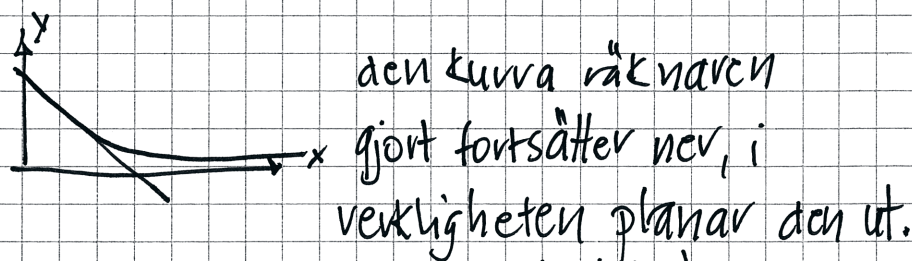 y
den kurva räknaren
gjort fortsätter ner, i
x
verkligheten planar den ut.